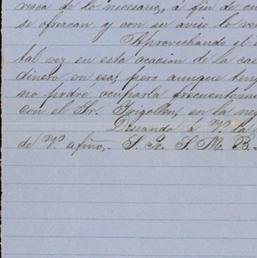 resa de lo necesario, a fin de cu
se ofrezcan y con su aviso lo ve
Aprovechando el
tal vez en esta ocasion de la cas
dinero en esa; pero aunque ten
no podré ocuparla frecuentem
con el Sr. Frigollen, en la neg
Deseando á V. la
de V. afmo. S. S. M. B.